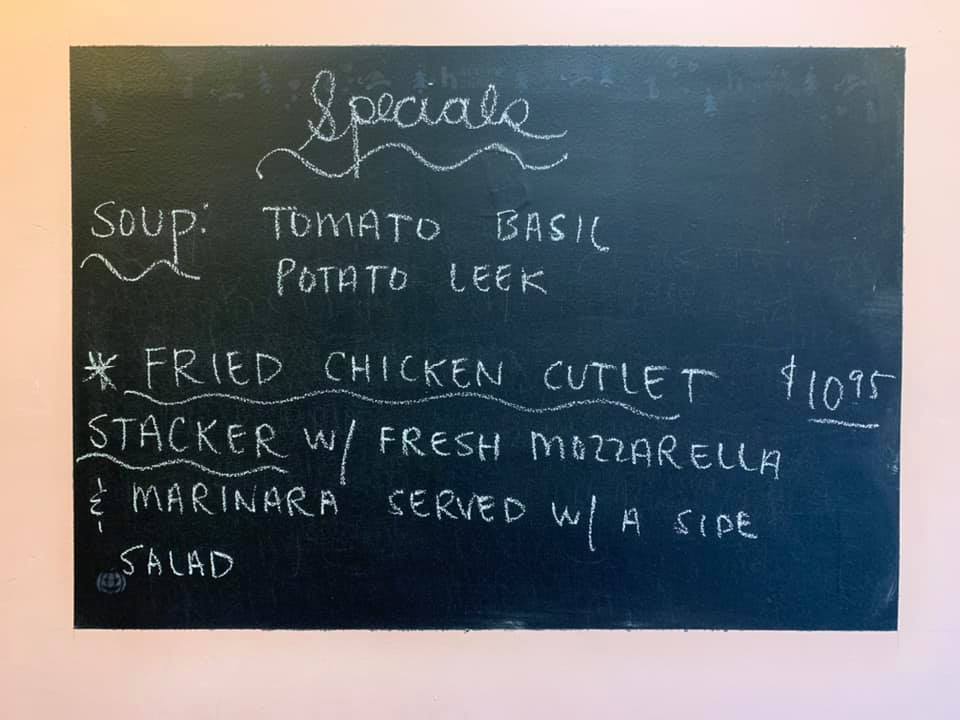 Specials
SOUP: TOMATO BASIL
POTATO LEEK
* FRIED CHICKEN CUTLET $10.95
STACKER W/ FRESH MOZZARELLA
& MARINARA SERVED W/ A SIDE
SALAD